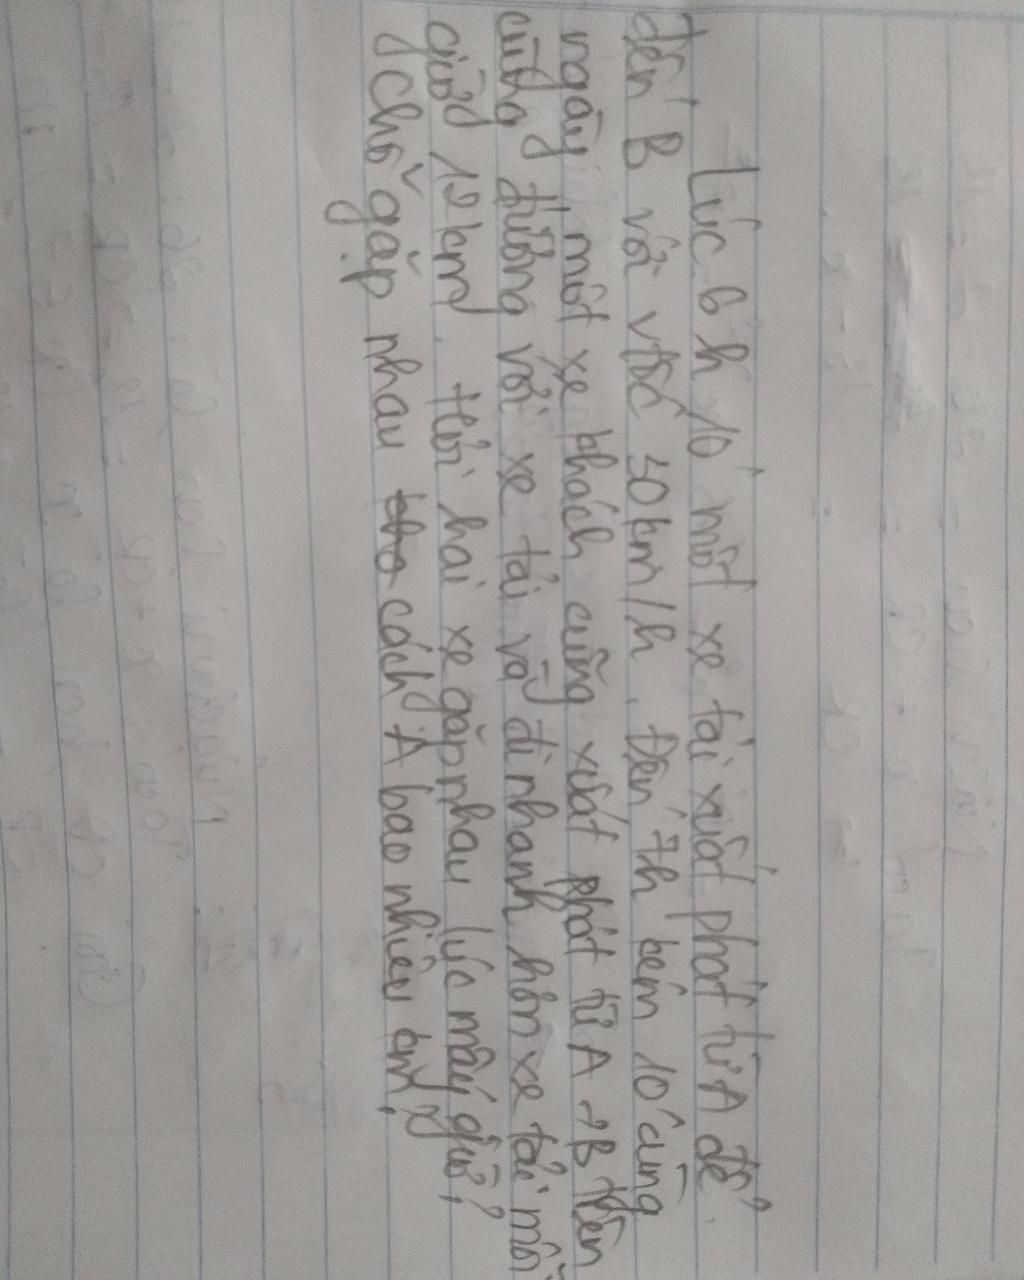 Lúc 6h 10' một xe tải xuất phát từ A để
đến B với vtốc 50km/h. Đến 7h kém 10' cùng
ngày một xe khách cũng xuất phát từ A → B trên
cùng đường với xe tải và đi nhanh hơn xe tải mỗi
giờ 12km. Hỏi hai xe gặp nhau lúc mấy giờ?
chỗ gặp nhau cách A bao nhiêu km?